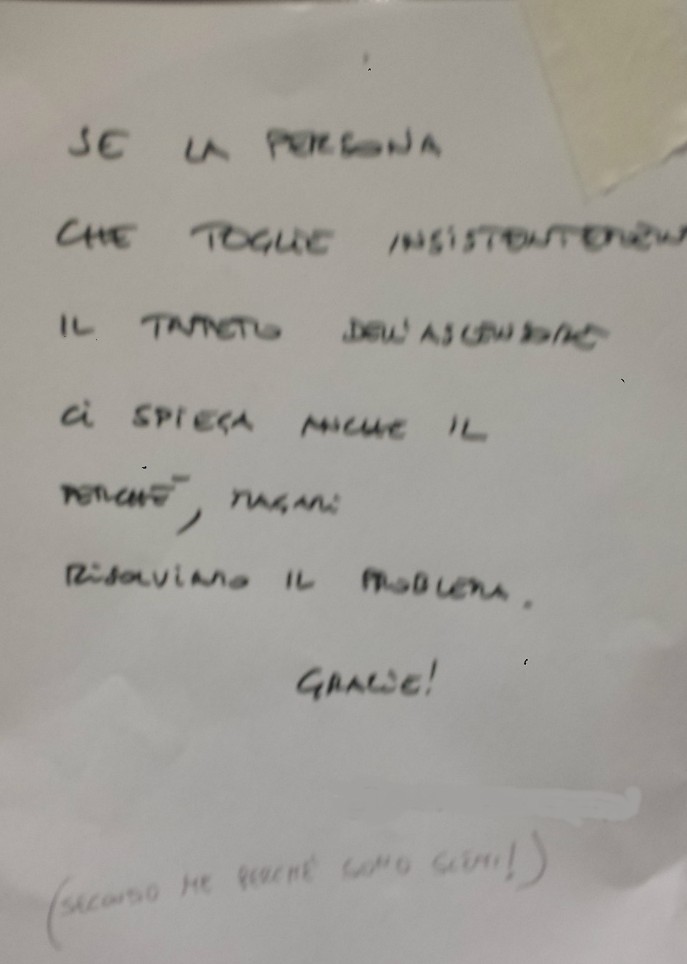 SE LA PERSONA
CHE TOGLIE INSISTENTEMEN
IL TAPPETO DELL'ASCENSORE
CI SPIEGA ANCHE IL
PERCHÉ, MAGARI
RISOLVIAMO IL PROBLEMA.
GRAZIE!
(SECONDO ME PERCHÉ SONO SCEMI!)